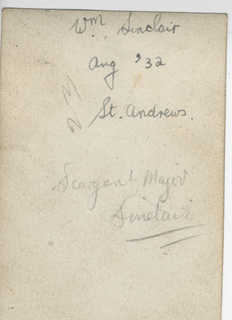 Wm. Sinclair
Aug '32
St. Andrews.
Seargent Major
Sinclair